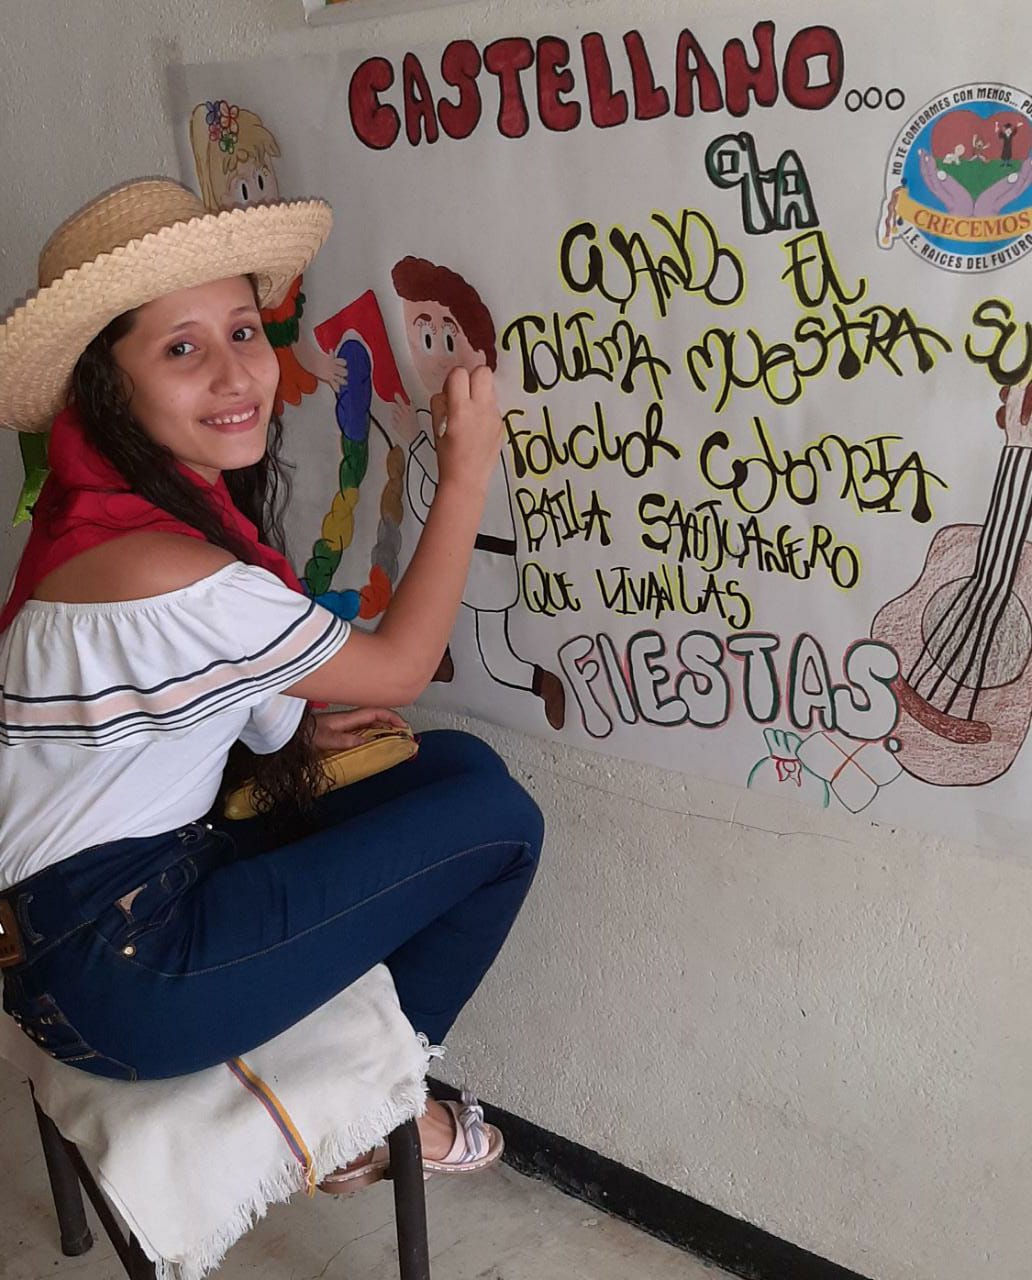 CASTELLANO...
CUANDO EL
TOLIMA MUESTRA SU
FOLCLOR COLOMBIA
BAILA SANJUANERO
QUE VIVAN LAS
FIESTAS
NO TE CONFORMES CON MENOS...
CRECEMOS
I.E. RAICES DEL FUTURO